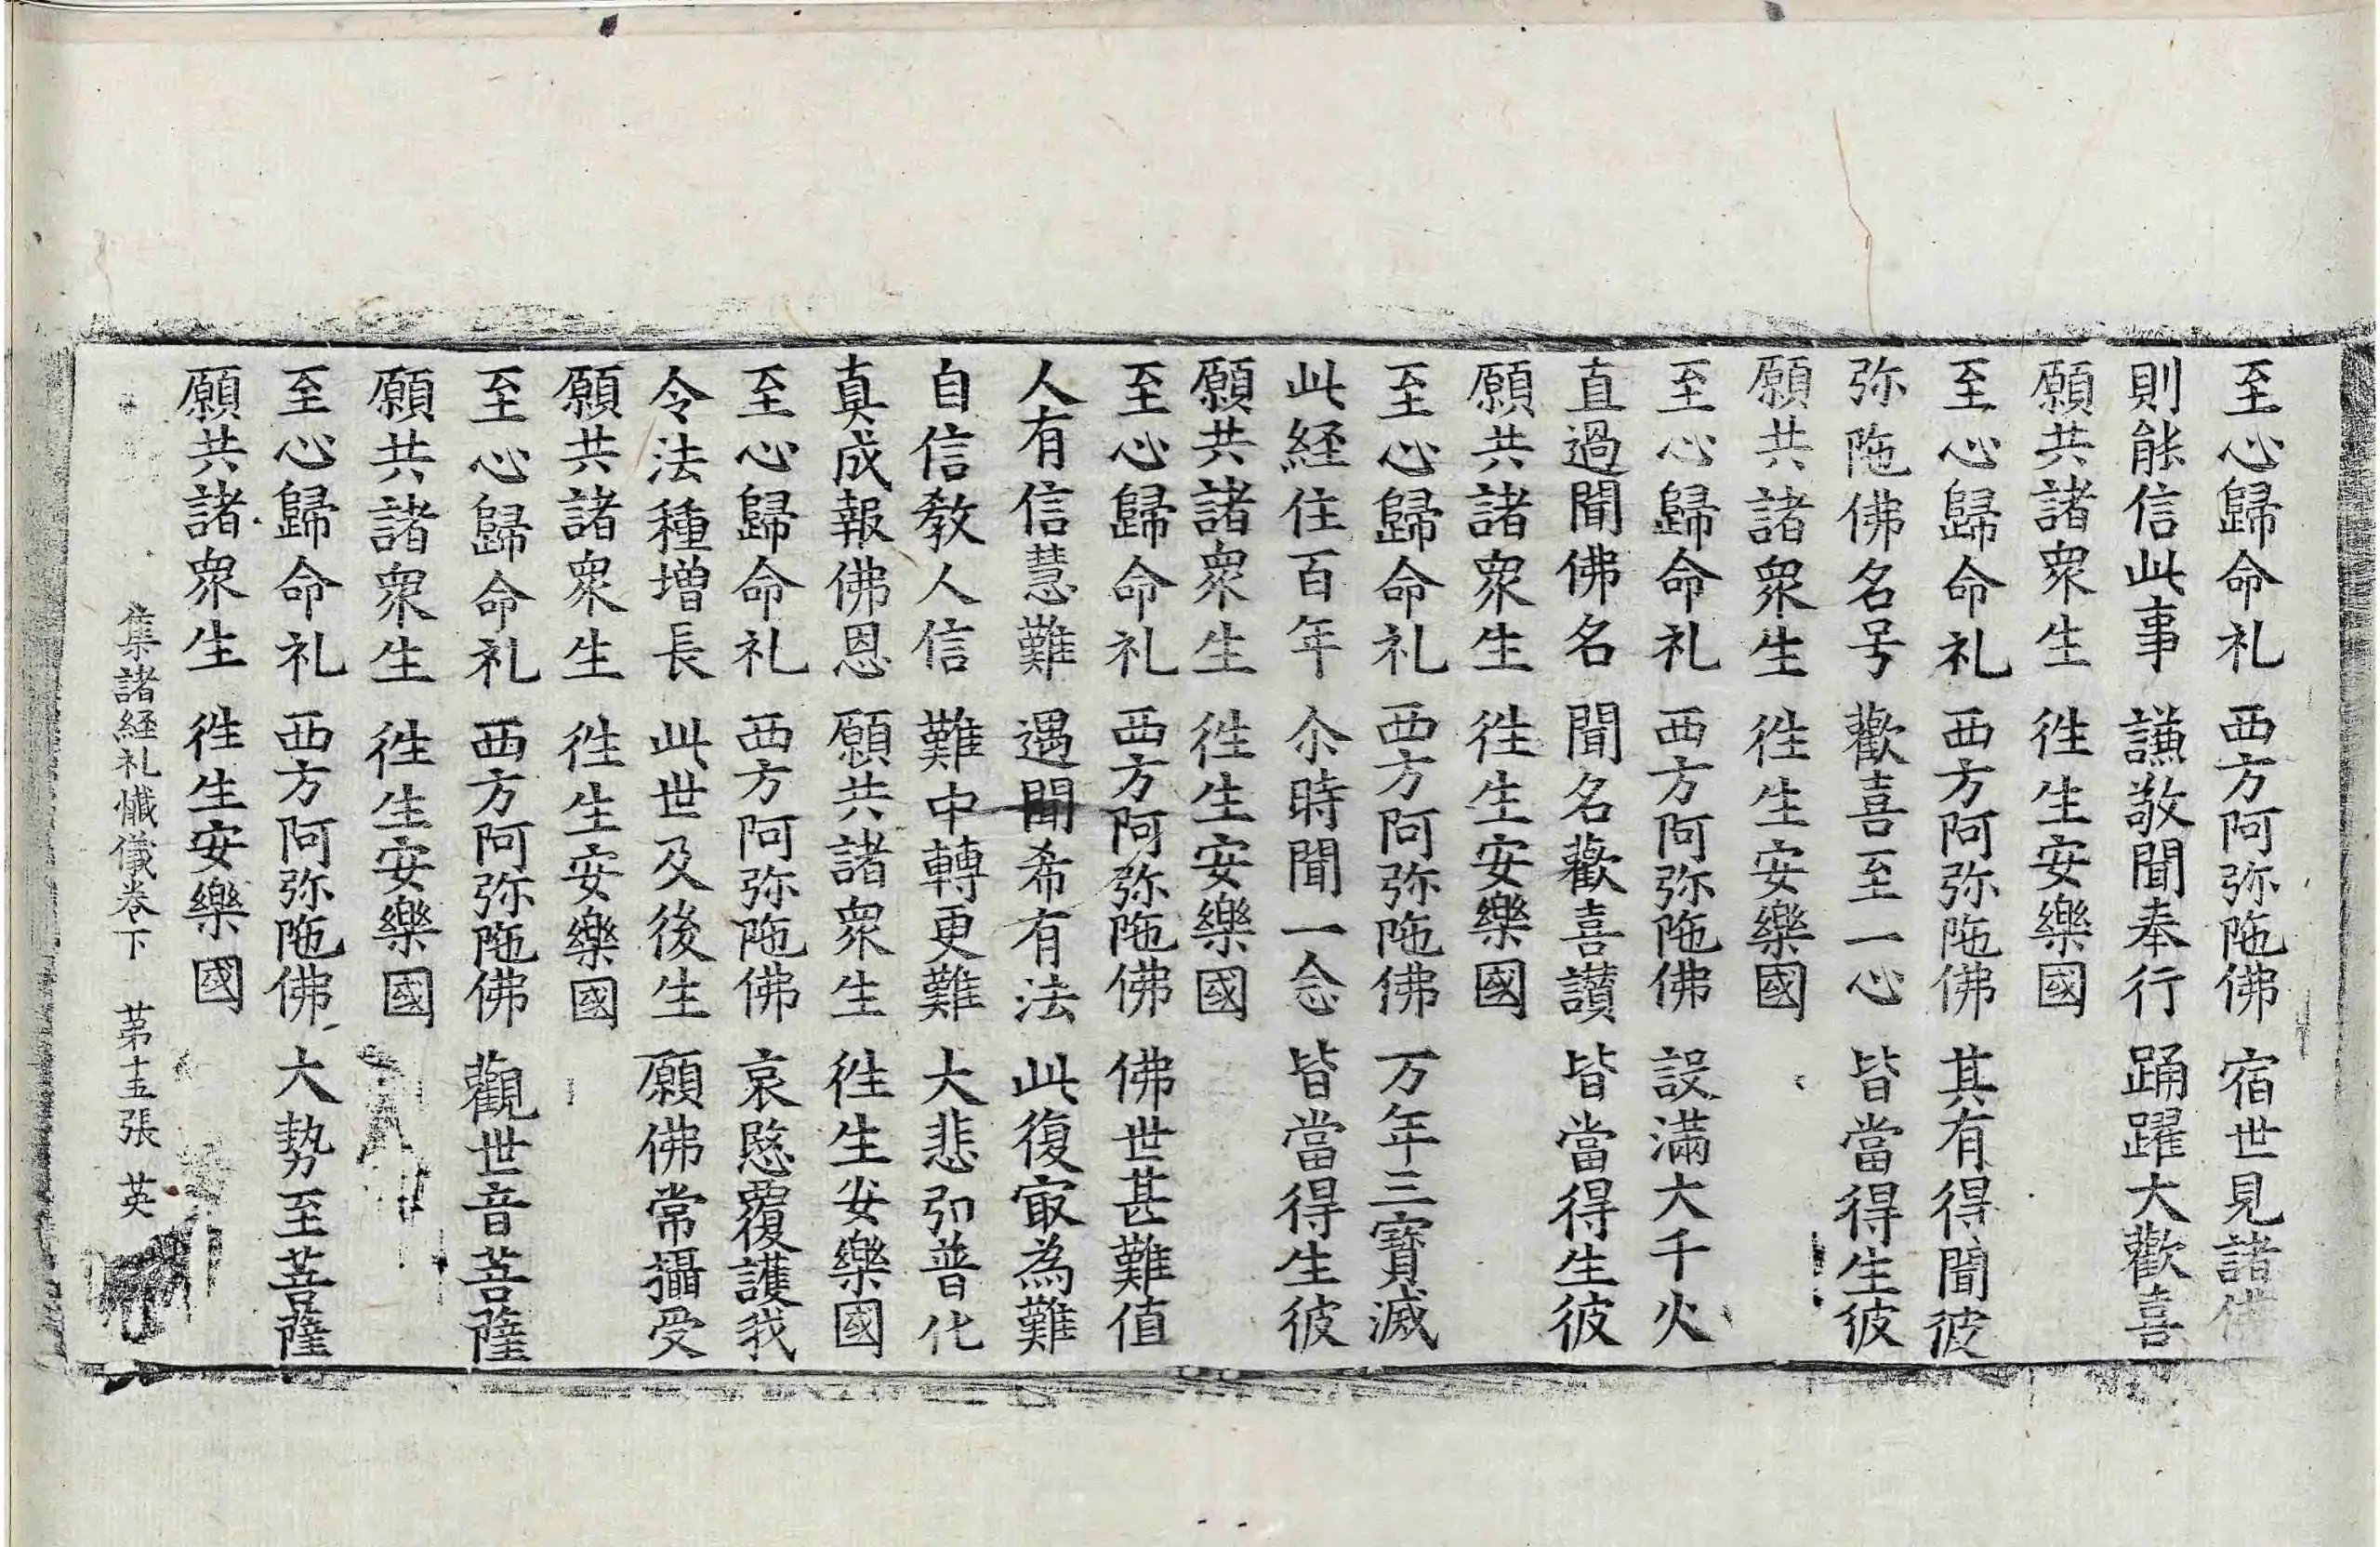 至心歸命礼 西方阿弥陁佛 宿世見諸佛
則能信此事 謙敬聞奉行 踊躍大歡喜
願共諸衆生 徃生安樂國
至心歸命礼 西方阿弥陁佛 其有得聞彼
弥陁佛名号 歡喜至一心 皆當得生彼
願共諸衆生 徃生安樂國
至心歸命礼 西方阿弥陁佛 設滿大千火
直過聞佛名 聞名歡喜讃 皆當得生彼
願共諸衆生 徃生安樂國
至心歸命礼 西方阿弥陁佛 万年三寶滅
此経住百年 尒時聞一念 皆當得生彼
願共諸衆生 徃生安樂國
至心歸命礼 西方阿弥陁佛 佛世甚難值
人有信慧難 遇聞希有法 此復㝡為難
自信教人信 難中轉更難 大悲弘普化
真成報佛恩 願共諸衆生 徃生安樂國
至心歸命礼 西方阿弥陁佛 哀愍覆護我
令法種增長 此世及後生 願佛常攝受
願共諸衆生 徃生安樂國
至心歸命礼 西方阿弥陁佛 觀世音菩薩
願共諸衆生 徃生安樂國
至心歸命礼 西方阿弥陁佛 大勢至菩薩
願共諸衆生 徃生安樂國
集諸経礼懺儀卷下 苐十五張 英